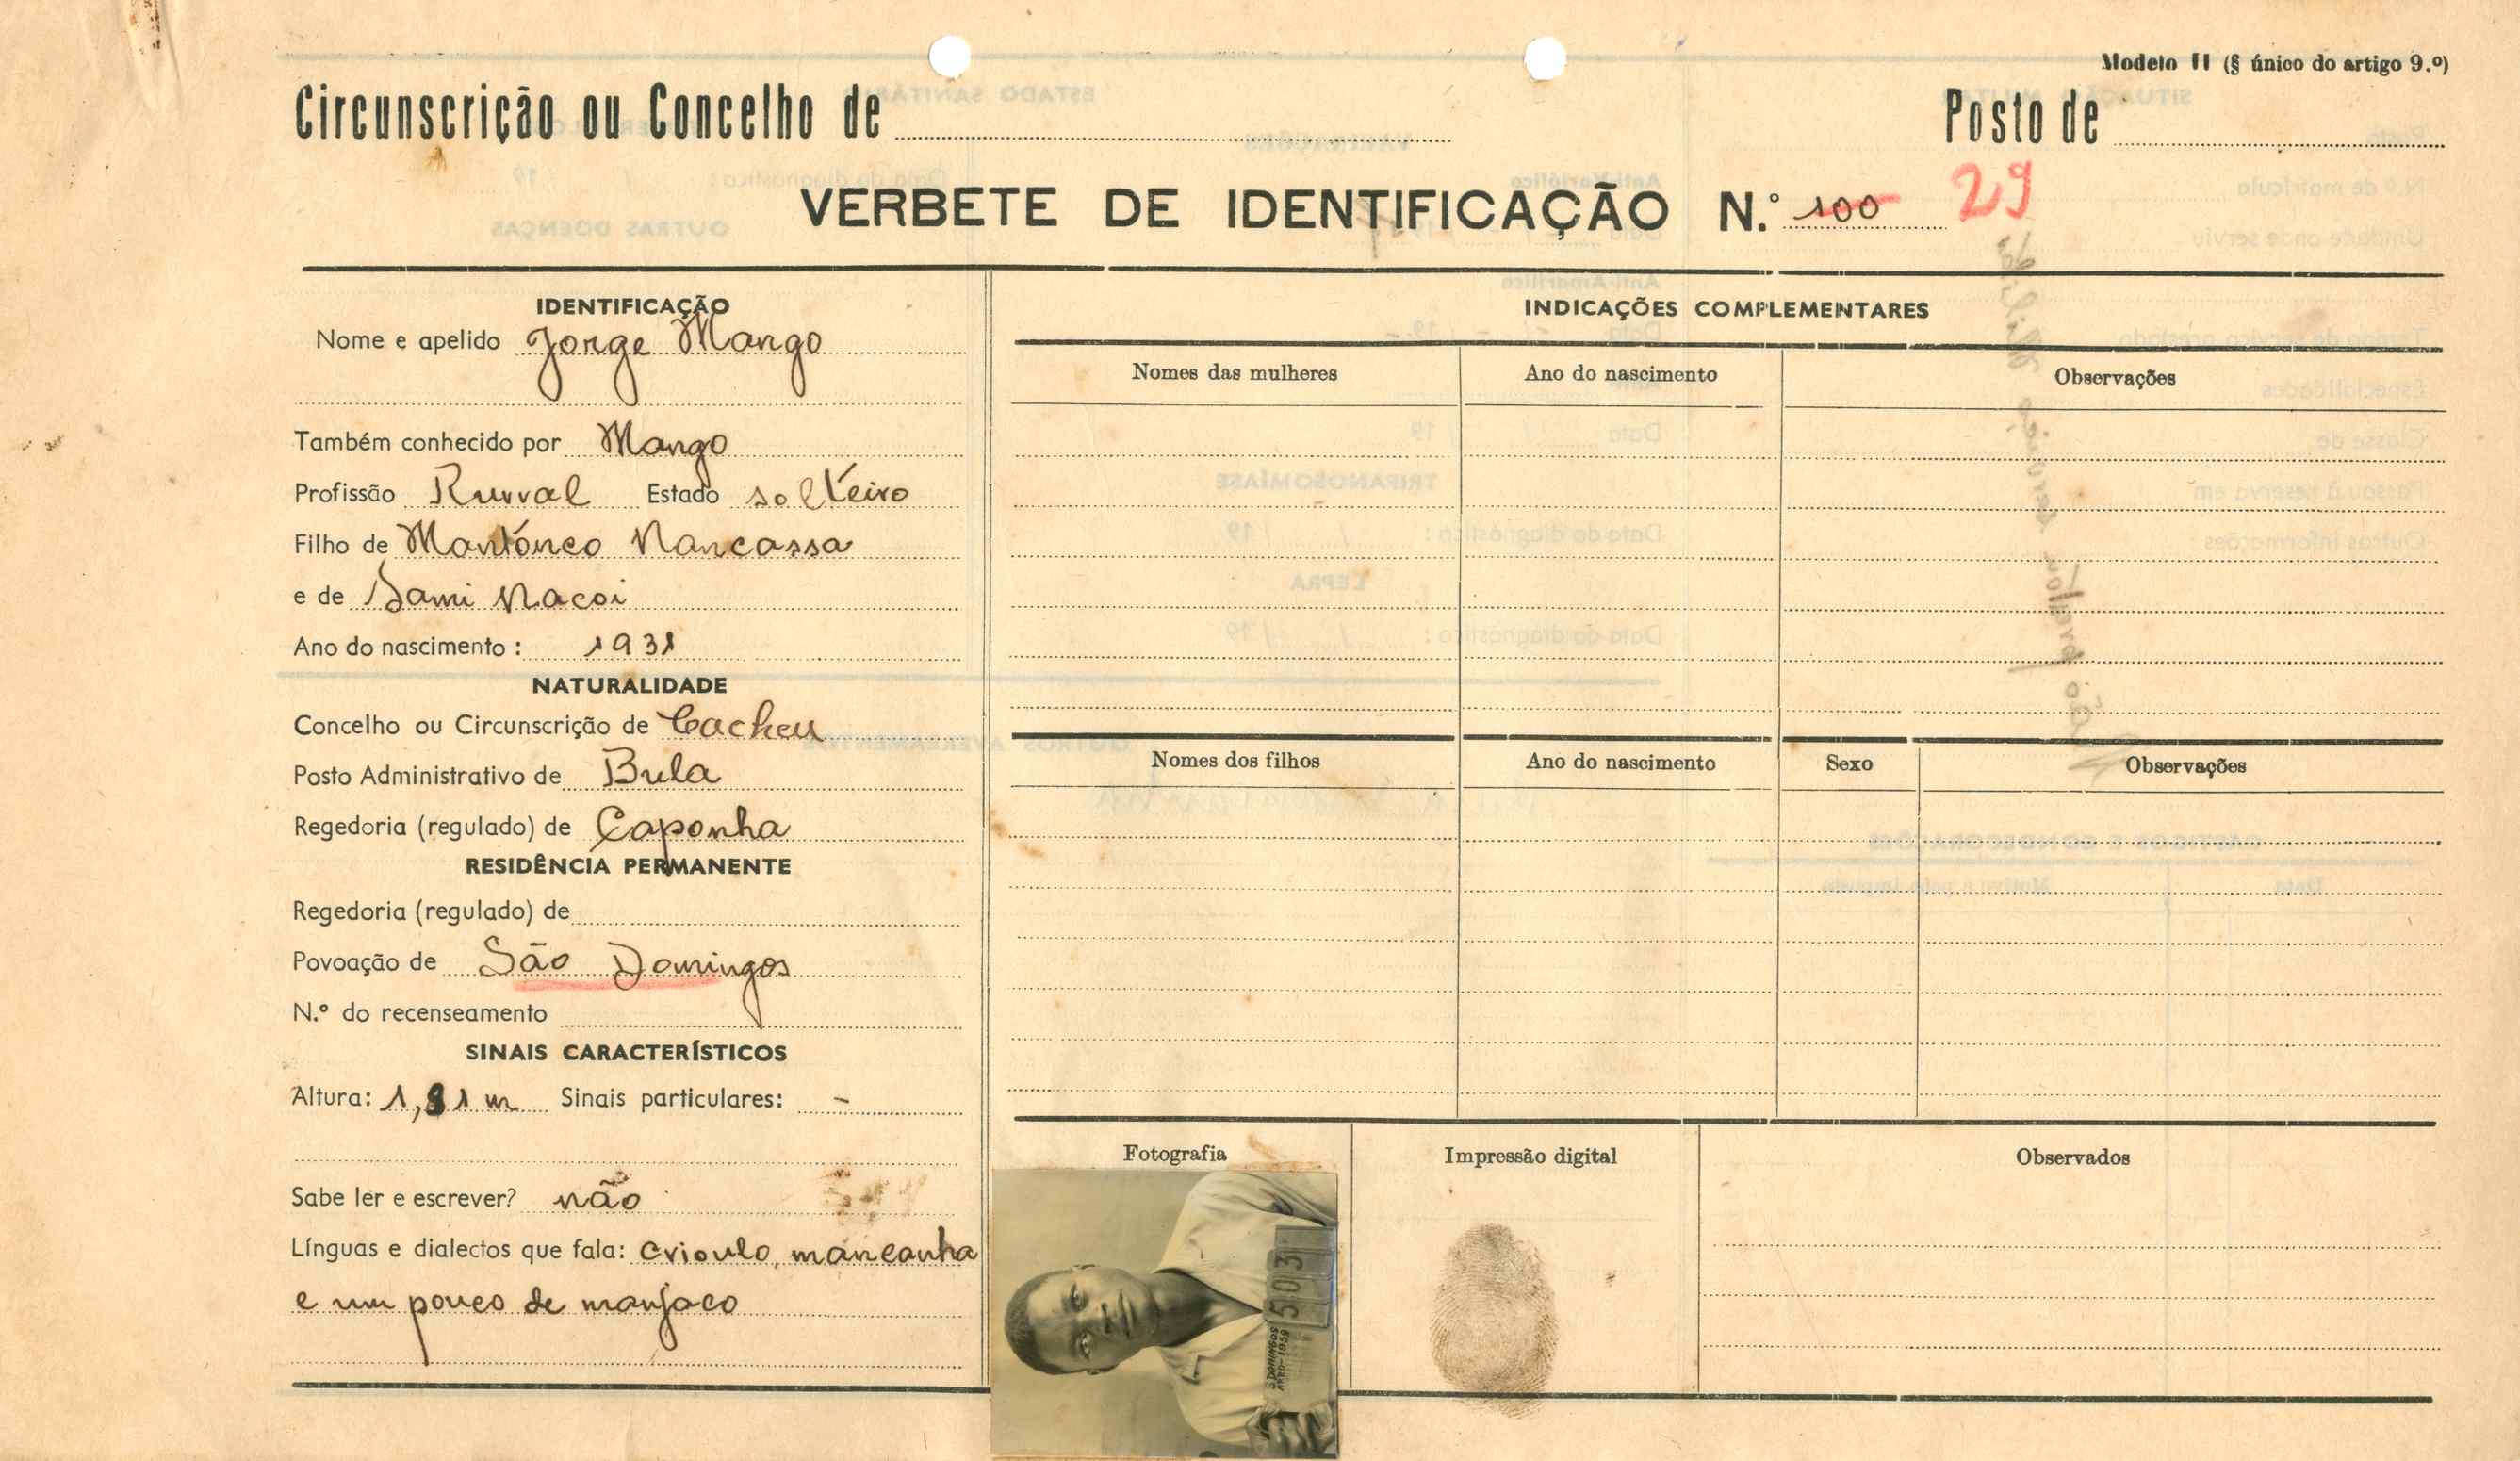 Modelo II (§ único do artigo 9.º)
Circunscrição ou Concelho de
Posto de
VERBETE DE IDENTIFICAÇÃO N.º 100 29
IDENTIFICAÇÃO
Nome e apelido Jorge Mango
Também conhecido por Mango
Profissão Rurral Estado solteiro
Filho de Mantónco Nancassa
e de Sami Nacoi
Ano do nascimento : 1931
NATURALIDADE
Concelho ou Circunscrição de Cacheu
Posto Administrativo de Bula
Regedoria (regulado) de Caponha
RESIDÊNCIA PERMANENTE
Regedoria (regulado) de
Povoação de São Domingos
N.º do recenseamento
SINAIS CARACTERÍSTICOS
Altura: 1,81 m Sinais particulares: -
Sabe ler e escrever? não
Línguas e dialectos que fala: crioulo, mancanha
e um pouco de manjaco
INDICAÇÕES COMPLEMENTARES
Nomes das mulheres Ano do nascimento Observações
Nomes dos filhos Ano do nascimento Sexo Observações
Fotografia Impressão digital Observados
503
S. DOMINGOS
1959